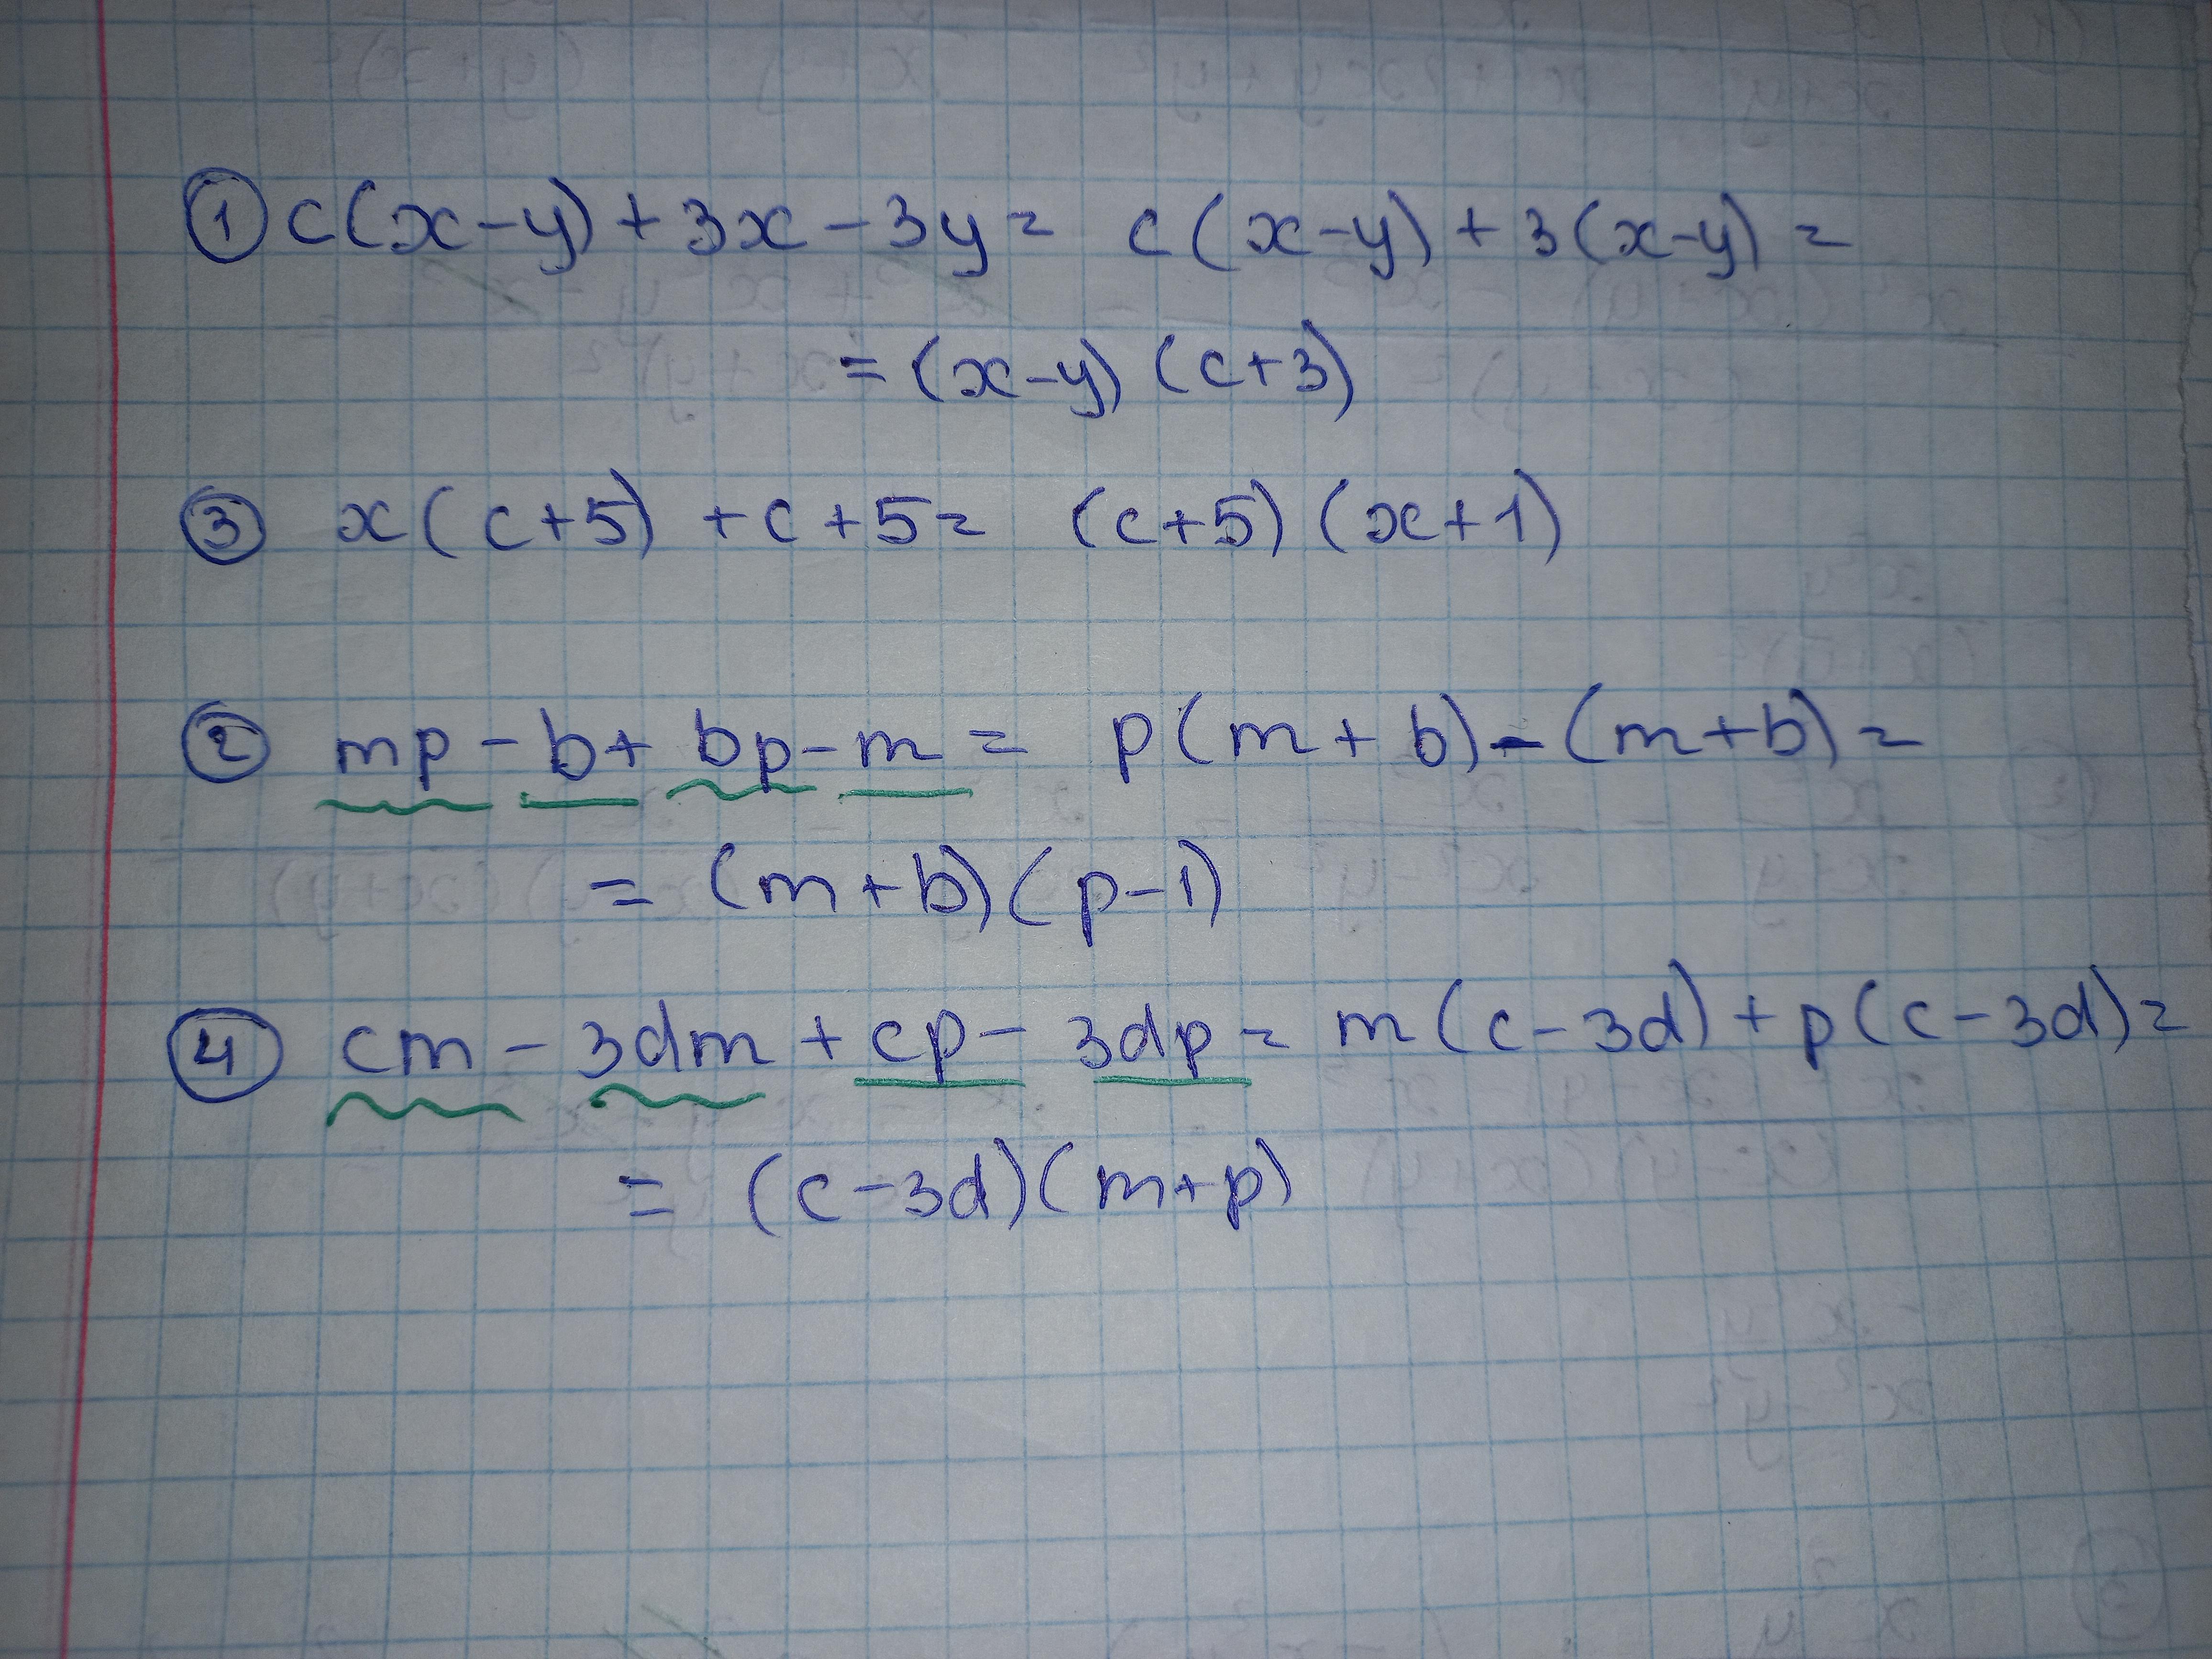 ① c(x-y)+3x-3y= c(x-y)+3(x-y)=
=(x-y)(c+3)
③ x(c+5)+c+5= (c+5)(x+1)
② mp-b+bp-m= p(m+b)-(m+b)=
= (m+b)(p-1)
④ cm-3dm+cp-3dp= m(c-3d)+p(c-3d)=
= (c-3d)(m+p)